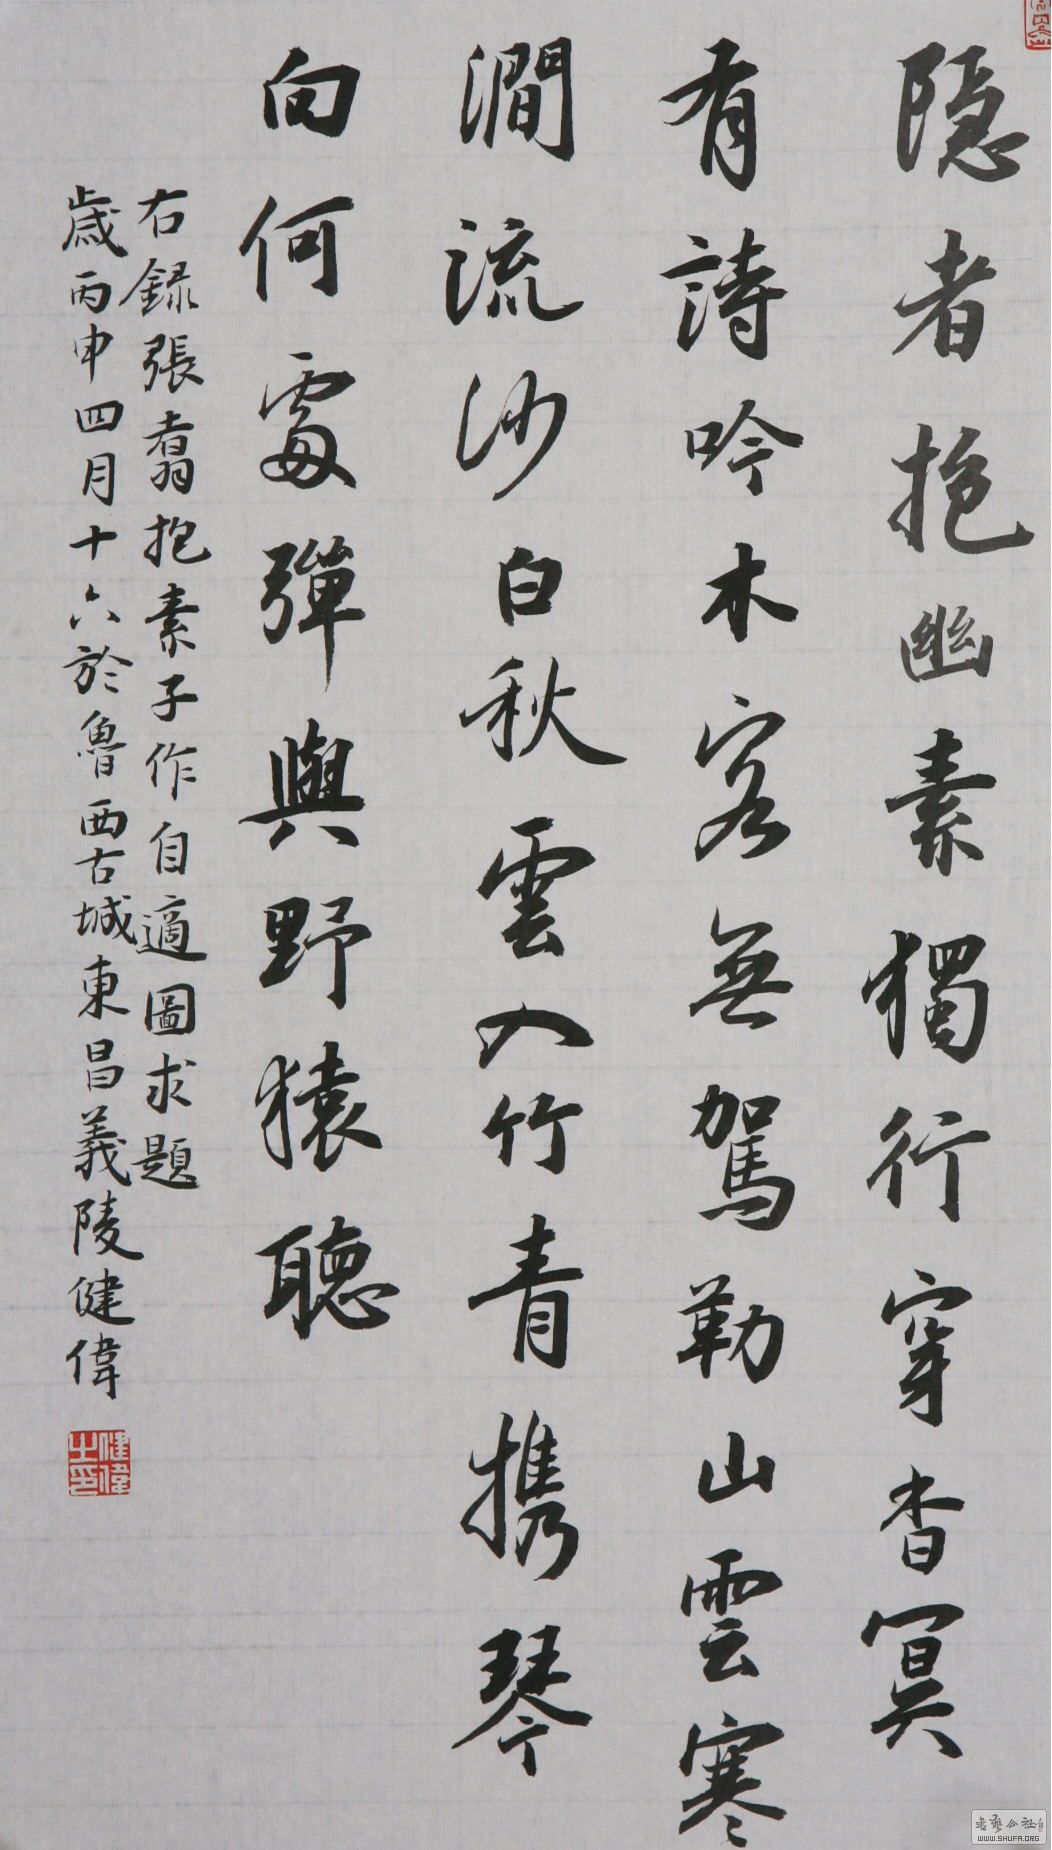 隐者抱幽素獨行穿杳冥
有詩吟木客無駕勒山雲寒
澗流沙白秋雲入竹青攜琴
向何處彈與野猿聽
右録張翥抱素子作自適圖求題
歲丙申四月十六於魯西古城東昌義陵健偉
健偉之印
WWW.SHUFA.ORG